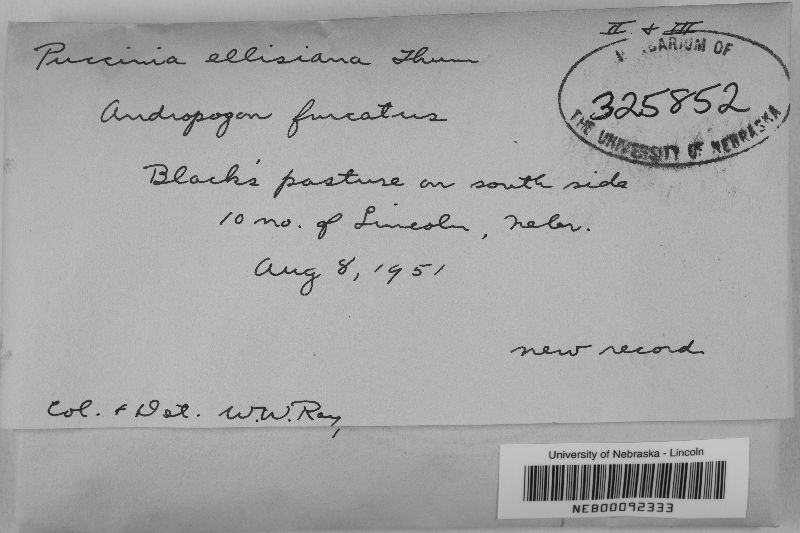 II & III
Puccinia ellisiana Thum
HERBARIUM OF
325852
THE UNIVERSITY OF NEBRASKA
Andropogon furcatus
Black's pasture on south side
10 no. of Lincoln, Nebr.
Aug 8, 1951
new record
Col. & Det. W.W. Ray,
University of Nebraska - Lincoln
NEB00092333